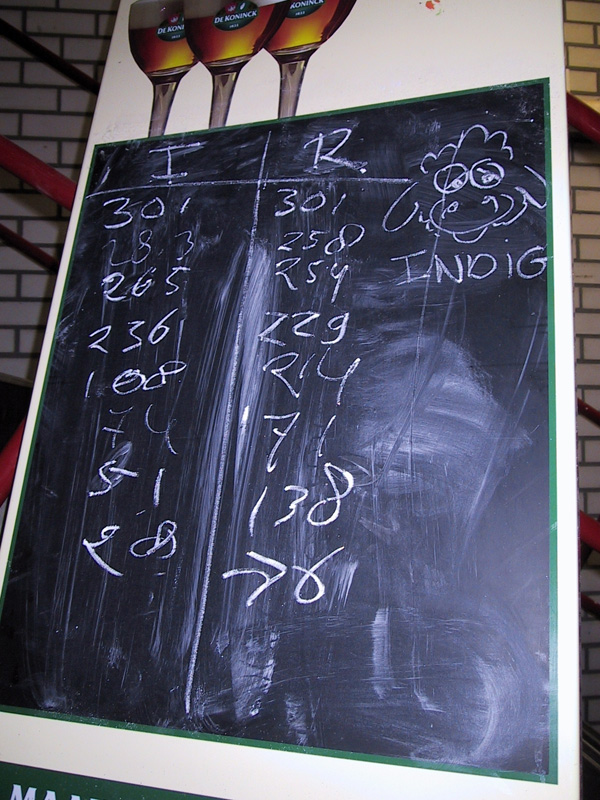 DE KONINCK DE KONINCK DE KONINCK
I R.
301 301
283 258
265 254
236 229
108 214
74 71
51 138
28 76
INDIG